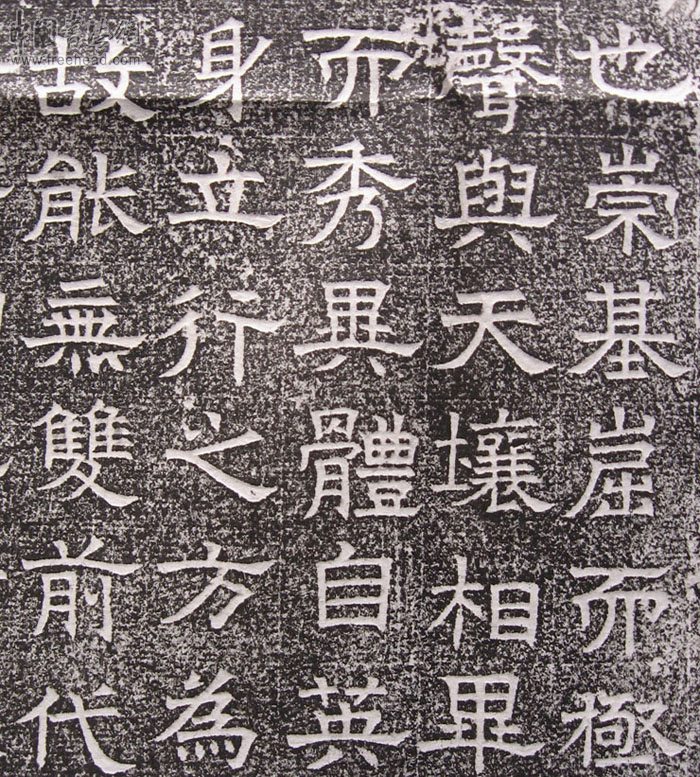 也崇基崫而極
聲與天壤相畢
而秀異體自英
身立行之方為
故能無雙前代
www.freehead.com